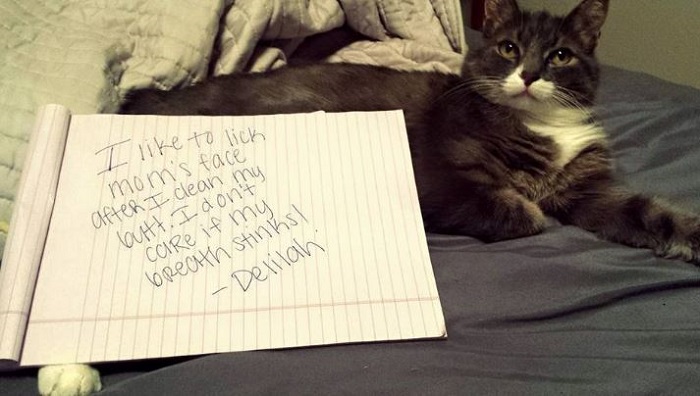 I like to lick
mom's face
after I clean my
butt. I don't
care if my
breath stinks!
- Delilah